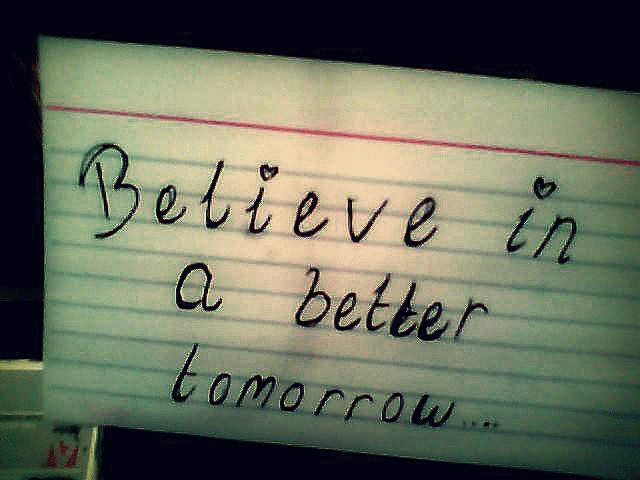 Believe in
a better
tomorrow....